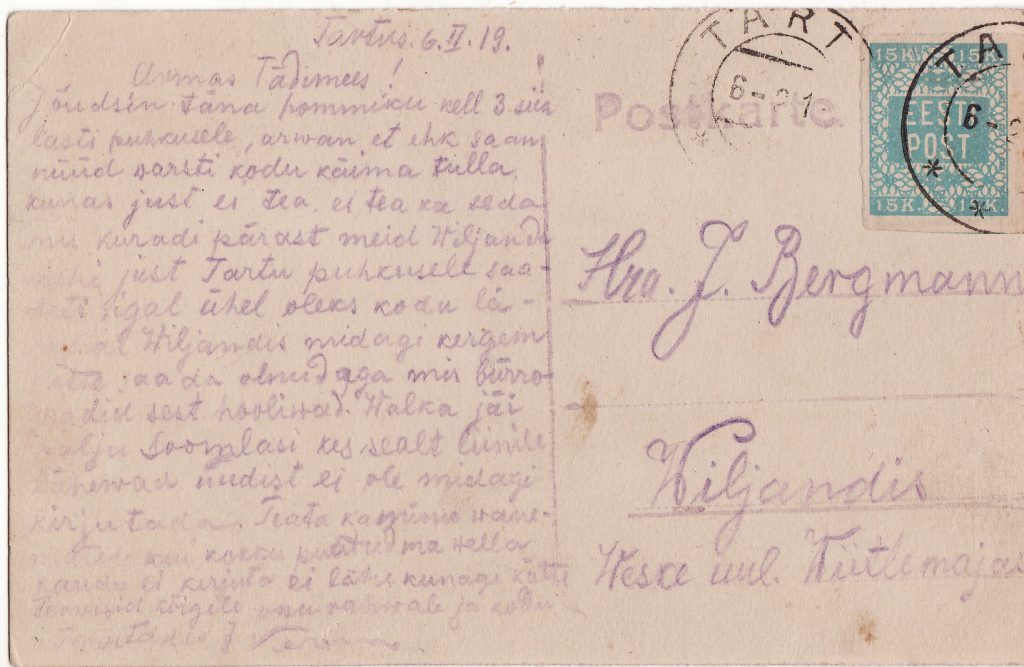 Tartus. 6. II. 19.
Armas Tädimees!
Jõudsin täna hommiku kell 3 siia
lasti puhkusele, arwan et ehk saan
nüüd warsti kodu käima tulla,
kunas just ei tea. ei tea ka seda
mis kuradi pärast meid Wiljandi
mehi just Tartu puhkusele saa-
igal ühel oleks kodu lä-
Wiljandis midagi kergem
saada olnud, aga mis bürro-
sest hooliwad. Walka jäi
palju Soomlasi kes sealt liinile
lähewad uudist ei ole midagi
kirjutada. Teata ka minu wane-
kui kokku puutu ma wella
kaudu ei kirjuta ei lähe kunagi kätte
Terwisid kõigile oma rahwale ja kodu
Postkarte.
TART
6-
TA
6-
15 K. 15
EESTI
POST
15 K. 15 K.
Hra. J. Bergmann
Wiljandis
Weske uul. Wiitlemajas